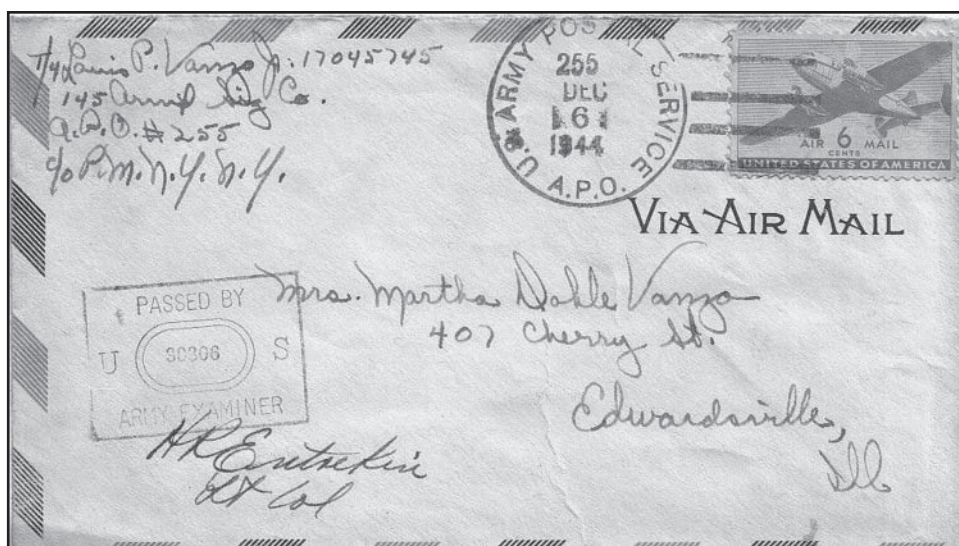 T/4 Louis P. Vanzo Jr. 17045745
145 Armd Sig Co.
A.P.O. #255
c/o P.M. N.Y. N.Y.
U.S. ARMY POSTAL SERVICE
255
DEC
6
1944
A.P.O.
AIR 6 MAIL
CENTS
UNITED STATES OF AMERICA
VIA AIR MAIL
PASSED BY
U 30306 S
ARMY EXAMINER
Mrs. Martha Dahle Vanzo
407 Cherry St.
Edwardsville,
Ill
HR Entrekin
Lt Col